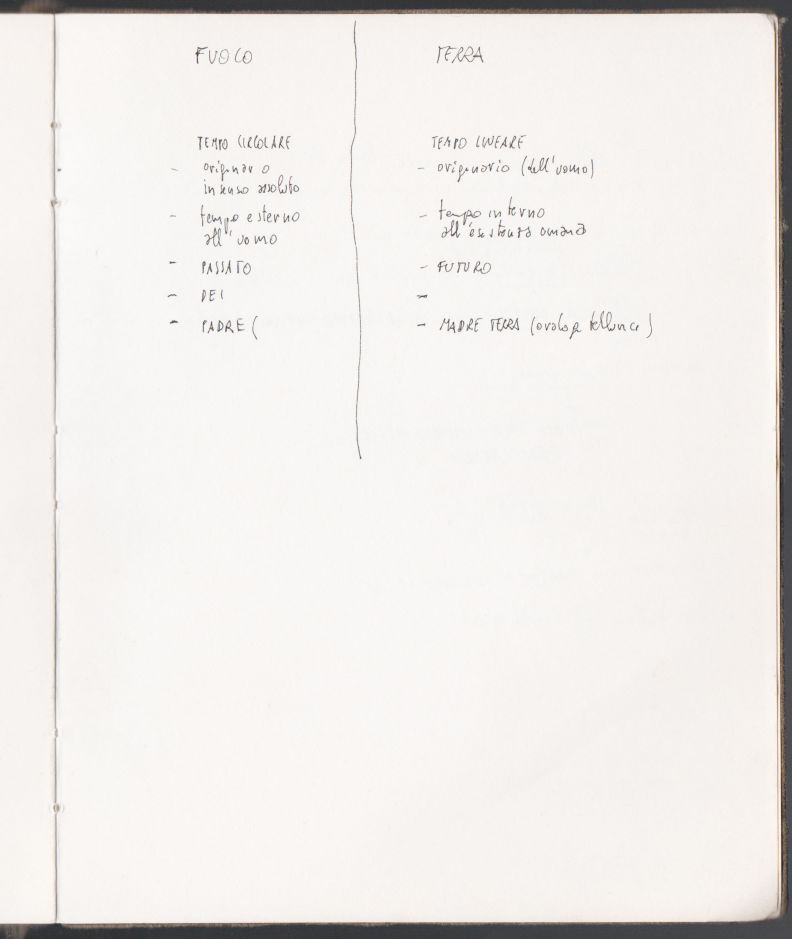 FUOCO
TEMPO CIRCOLARE
- originario
in senso assoluto
- tempo esterno
all'uomo
- PASSATO
- DEI
- PADRE (
TERRA
TEMPO LINEARE
- originario (dell'uomo)
- tempo interno
all'esistenza umana
- FUTURO
-
- MADRE TERRA (